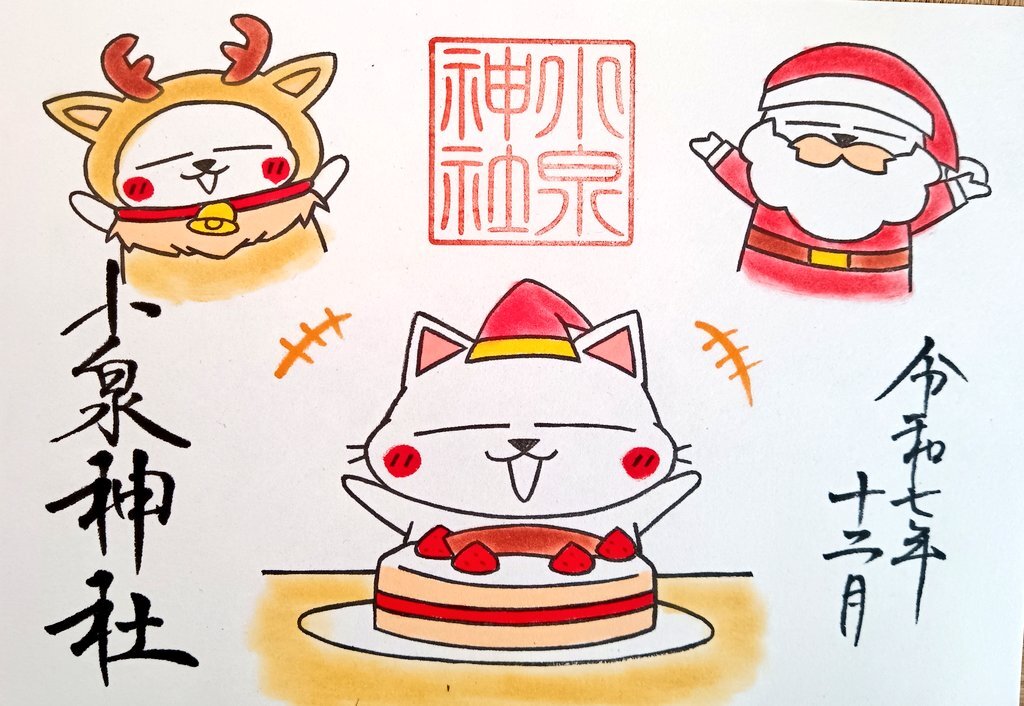 小泉
神社
令和七年
十二月
小泉神社